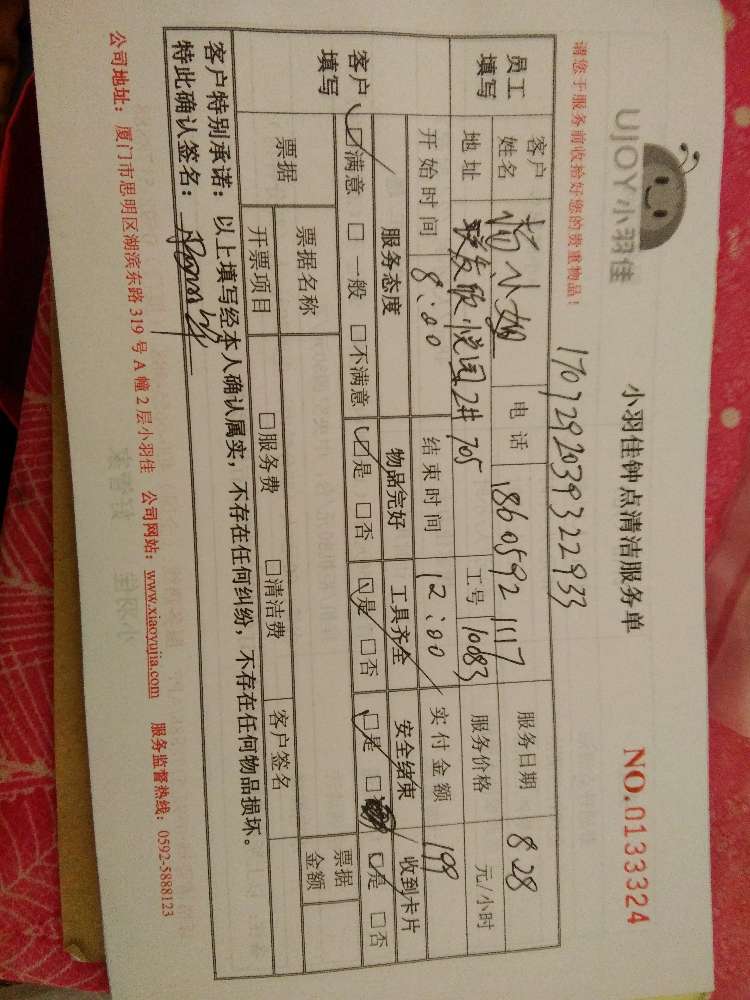 UJOY小羽佳
小羽佳钟点清洁服务单
NO.0133324
请您于服务前收拾好您的贵重物品！
17072920393 22933
员工填写
客户姓名 杨小姐 电话 18605921117 服务日期 8 28
地址 联发欣悦园2#705 工号 10083 服务价格 元/小时
开始时间 8:00 结束时间 12:00 实付金额 199
客户填写
服务态度 物品完好 工具齐全 安全结束 收到卡片
☑满意 □一般 □不满意 ☑是 □否 ☑是 □否 ☑是 □ ☑是 □否
票据 票据名称 票据金额
开票项目 □服务费 □清洁费 客户签名
客户特别承诺：以上填写经本人确认属实，不存在任何纠纷，不存在任何物品损坏。
特此确认签名：
公司地址：厦门市思明区湖滨东路319号A幢2层小羽佳 公司网站：www.xiaoyujia.com 服务监督热线：0592-5888123